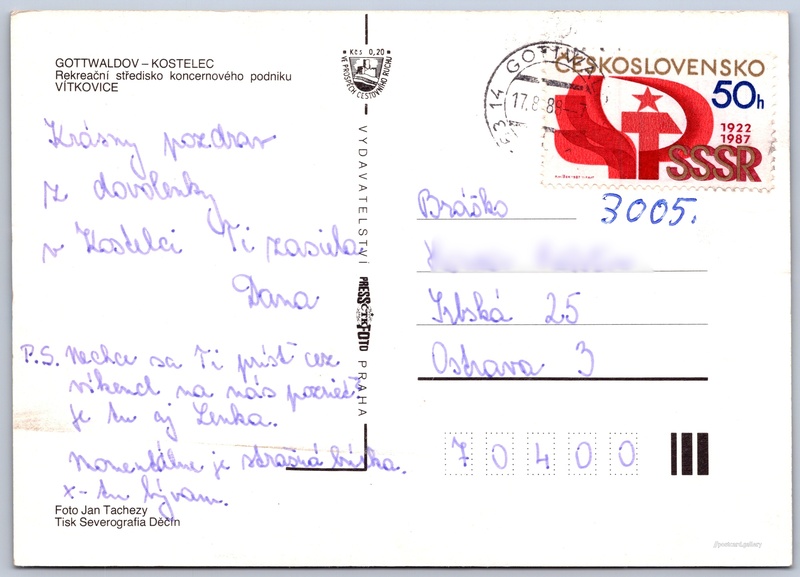 GOTTWALDOV – KOSTELEC
Rekreační středisko koncernového podniku
VÍTKOVICE
Kčs 0,20
VE PROSPĚCH CESTOVNÍHO RUCHU
GOTTWA
17.8.88
ČESKOSLOVENSKO
50h
1922
1987
SSSR
Krásny pozdrav
z dovolenky
v Kostelci Ti zasiela
Dana
P.S. Nechce sa Ti prísť cez
víkend na nás pozrieť?
Je tu aj Lenka.
Momentálne je strašná búrka.
x - tu bývam.
VYDAVATELSTVÍ
PRESSFOTO
ČTK
PRAHA
Bráško
3005.
Srbská 25
Ostrava 3
70400
Foto Jan Tachezy
Tisk Severografia Děčín
//postcard.gallery